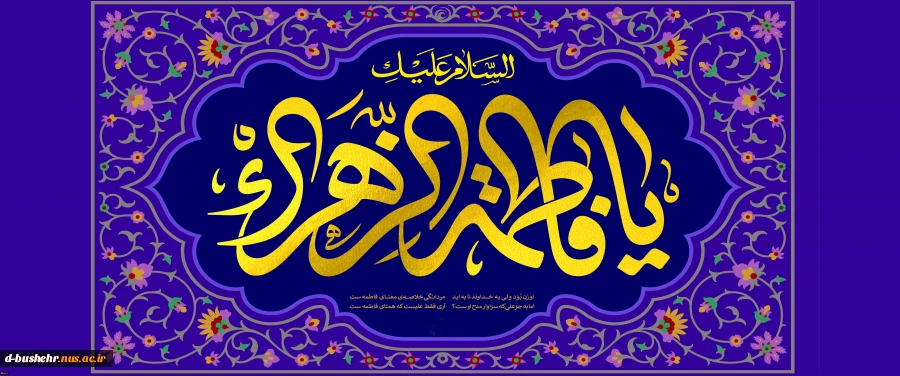 السَّلامُ عَلَیْكِ
یا فاطمة الزهراء
او زن بُوَد ولی به خداوند تا به ابد مردانگی خلاصه‌ی معنای فاطمه ست
اما به جز علی که سزاوار مدح اوست؟ آری فقط علیست که همتای فاطمه ست
d-bushehr.nus.ac.ir